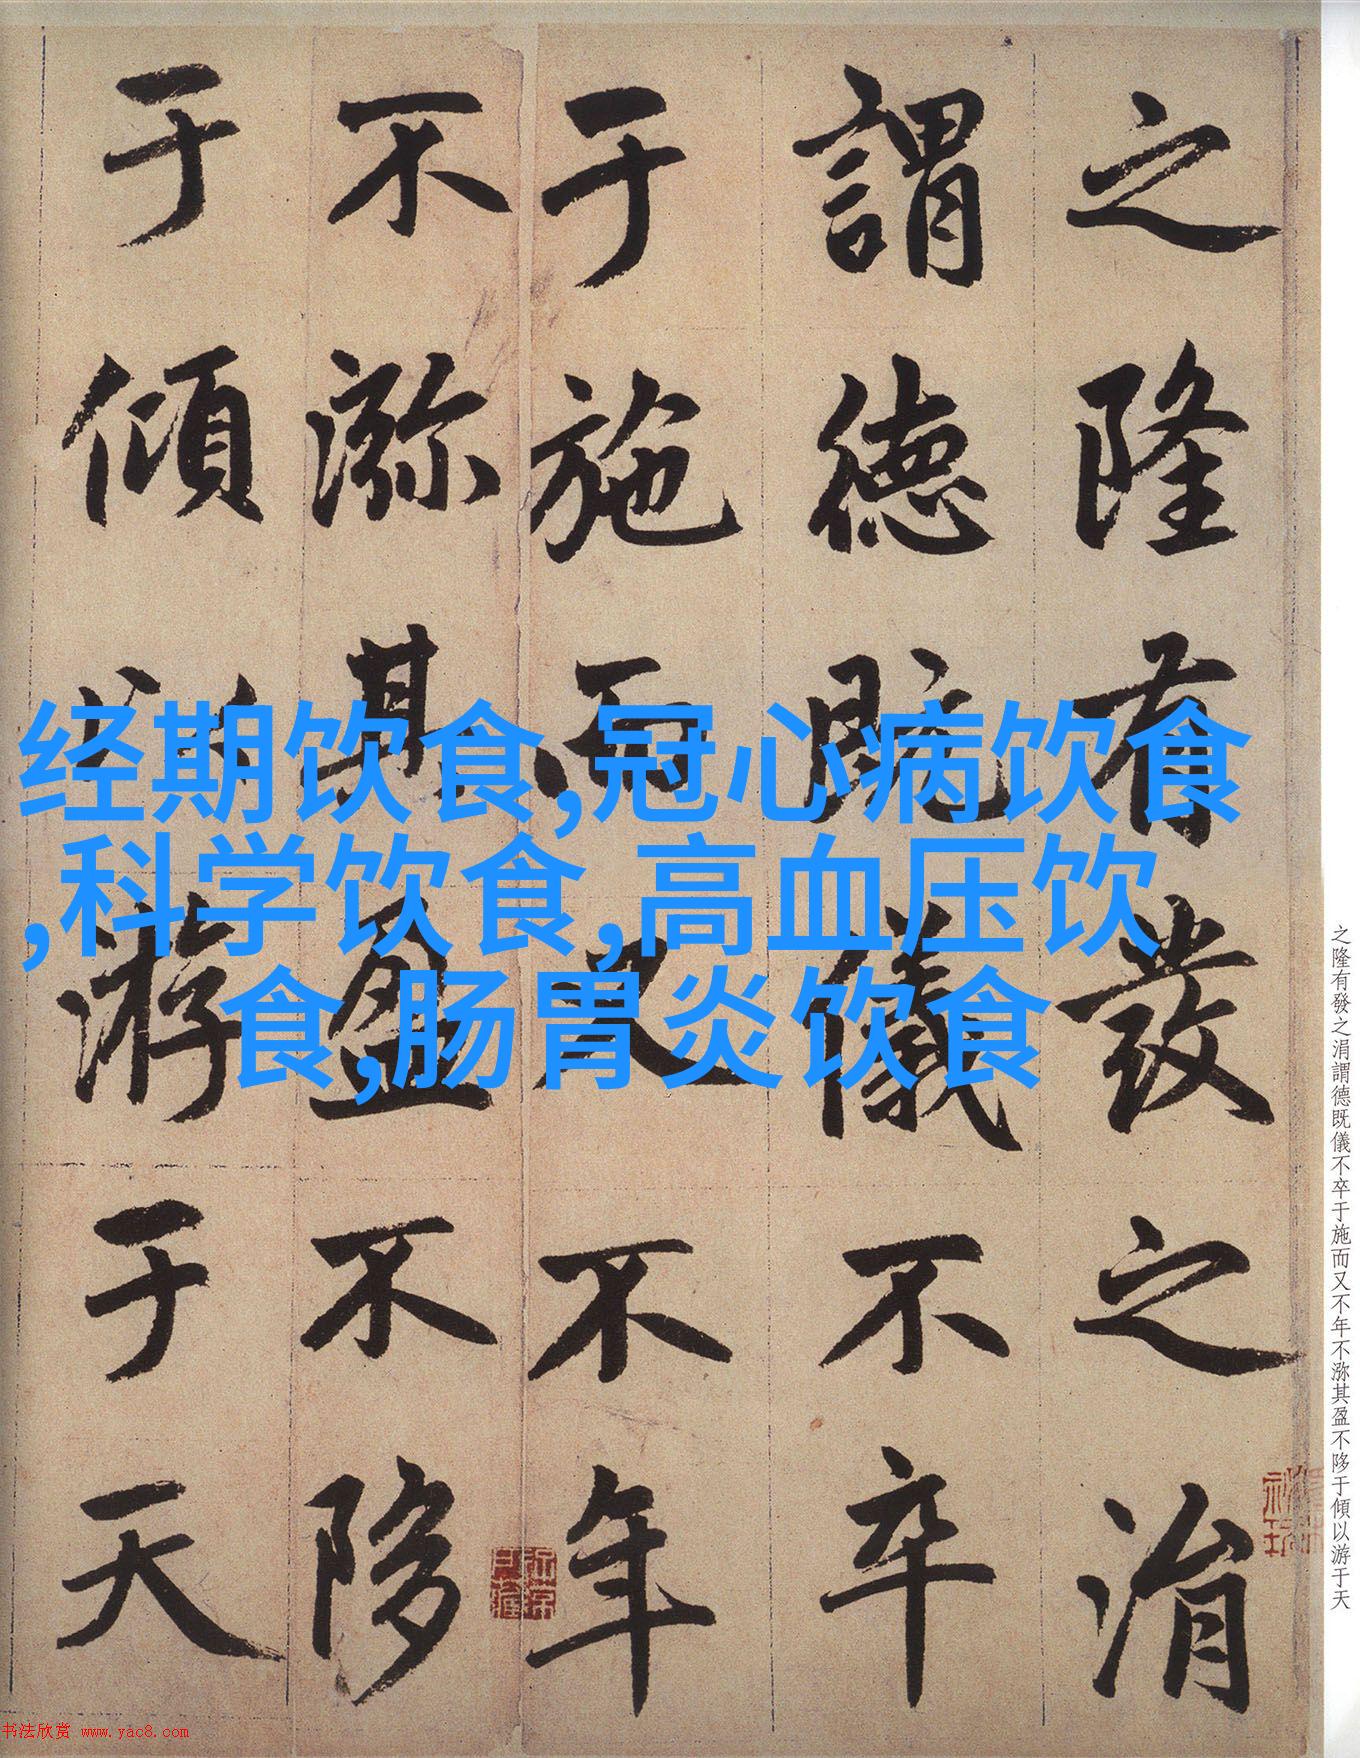 之隆有發之涓
謂德既儀不卒
于施而又不年
不㳽其盈不陊
于傾以游于天
经期饮食,冠心病饮食
,科学饮食,高血压饮
食,肠胃炎饮食
之隆有發之涓謂德既儀不卒于施而又不年不㳽其盈不陊于傾以游于天
书法欣赏 www.yac8.com